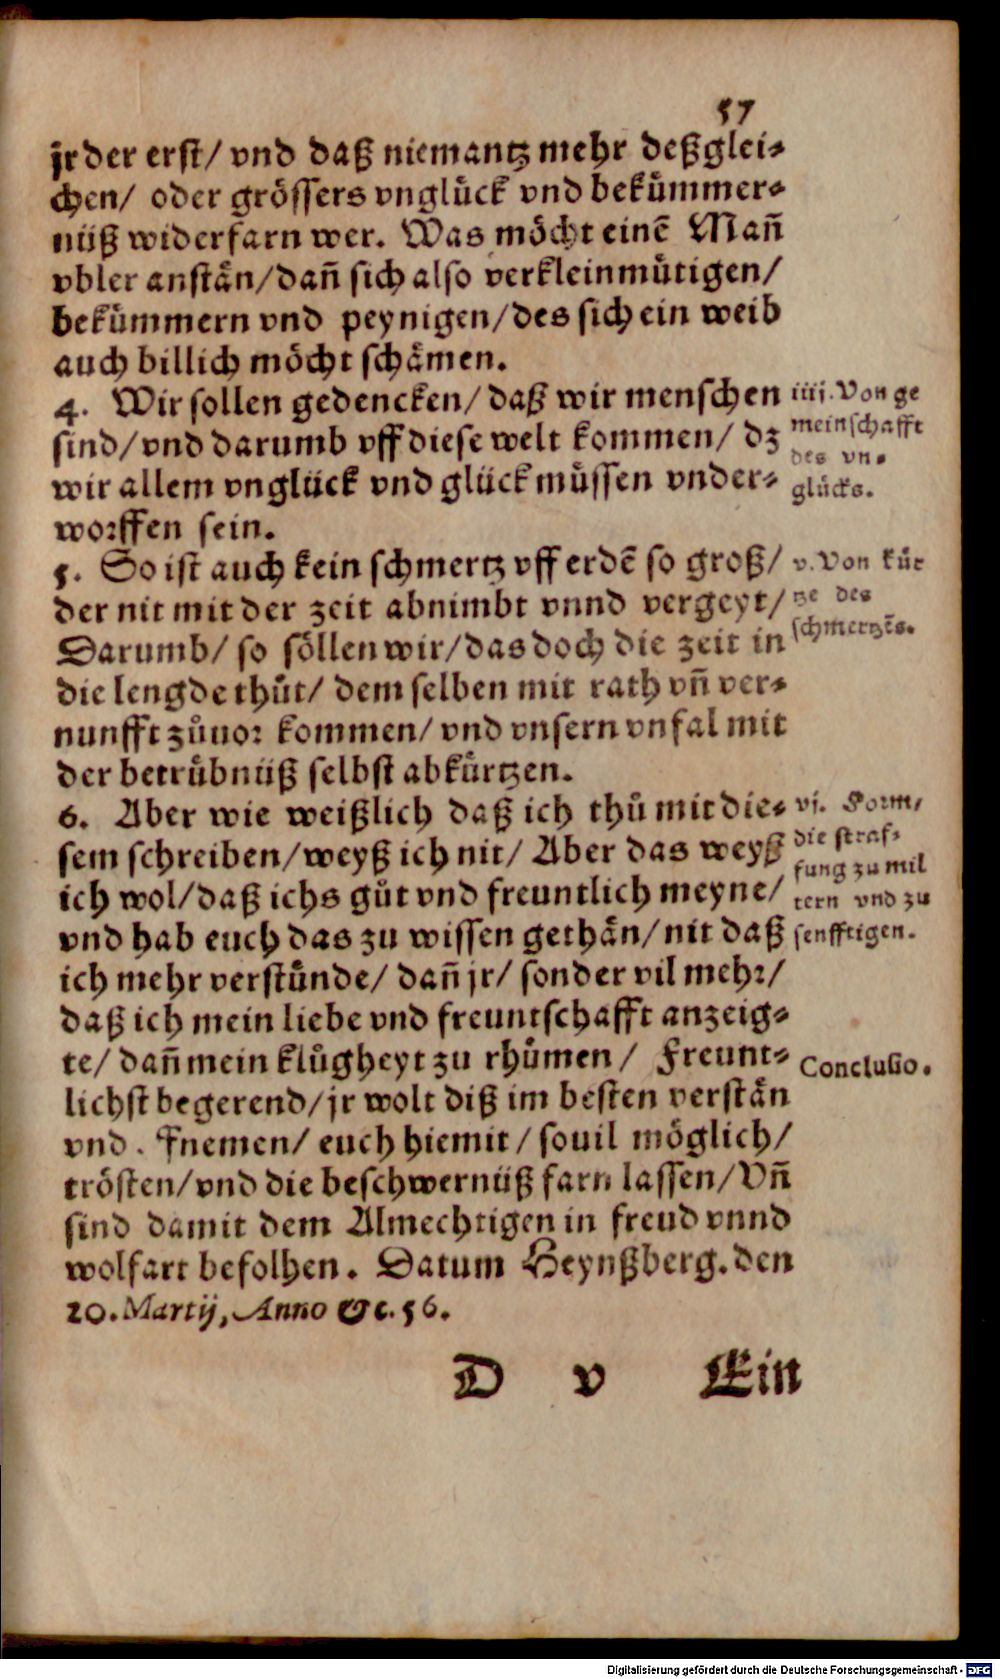 57
jr der erst/ vnd daß niemantz mehr deßglei-
chen/ oder grössers vnglück vnd bekümmer-
nüß widerfarn wer. Was möcht einē Mañ
vbler anstän/dañ sich also verkleinmütigen/
bekümmern vnd peynigen/des sich ein weib
auch billich möcht schämen.
4. Wir sollen gedencken/ daß wir menschen
sind/vnd darumb vff diese welt kommen/ dz
wir allem vnglück vnd glück müssen vnder-
worffen sein.
iiij. Von ge
meinschafft
des vn-
glücks.
5. So ist auch kein schmertz vff erdē so groß/
der nit mit der zeit abnimbt vnnd vergeyt/
Darumb/ so söllen wir/das doch die zeit in
die lengde thůt/ dem selben mit rath vñ ver-
nunfft zůuor kommen/ vnd vnsern vnfal mit
der betrübnüß selbst abkürtzen.
v. Von kür
tze des
schmertzēs.
6. Aber wie weißlich daß ich thů mit die-
sem schreiben/weyß ich nit/ Aber das weyß
ich wol/daß ichs gůt vnd freuntlich meyne/
vnd hab euch das zu wissen gethän/nit daß
ich mehr verstünde/ dañ jr/ sonder vil mehr/
daß ich mein liebe vnd freuntschafft anzeig-
te/ dañ mein klůgheyt zu rhümen/ Freunt-
lichst begerend/jr wolt diß im besten verstän
vnd fnemen/ euch hiemit/ souil möglich/
trösten/vnd die beschwernüß farn lassen/Vñ
sind damit dem Almechtigen in freud vnnd
wolfart befolhen. Datum Heynßberg. den
20. Martij, Anno &c. 56.
vj. Form/
die straf-
fung zu mil
tern vnd zu
senfftigen.
Conclusio.
D v Ein
Digitalisierung gefördert durch die Deutsche Forschungsgemeinschaft - DFG